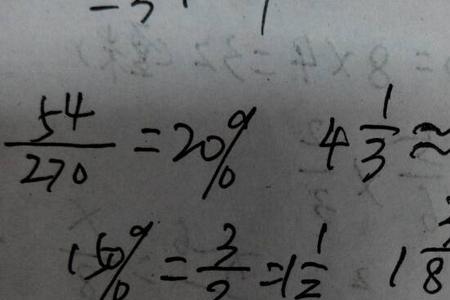 54/270 = 20% 4 1/3 ≈
150% = 3/2 = 1 1/2 1 /8